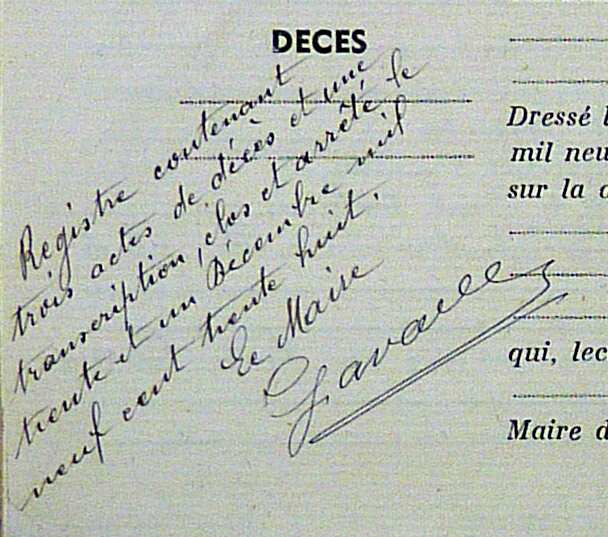 DECES
Registre contenant
trois actes de décès et une
transcription, clos et arrêté le
trente et un Décembre mil
neuf cent trente huit.
Le Maire
Dressé l
mil neu
sur la
qui, lec
Maire d